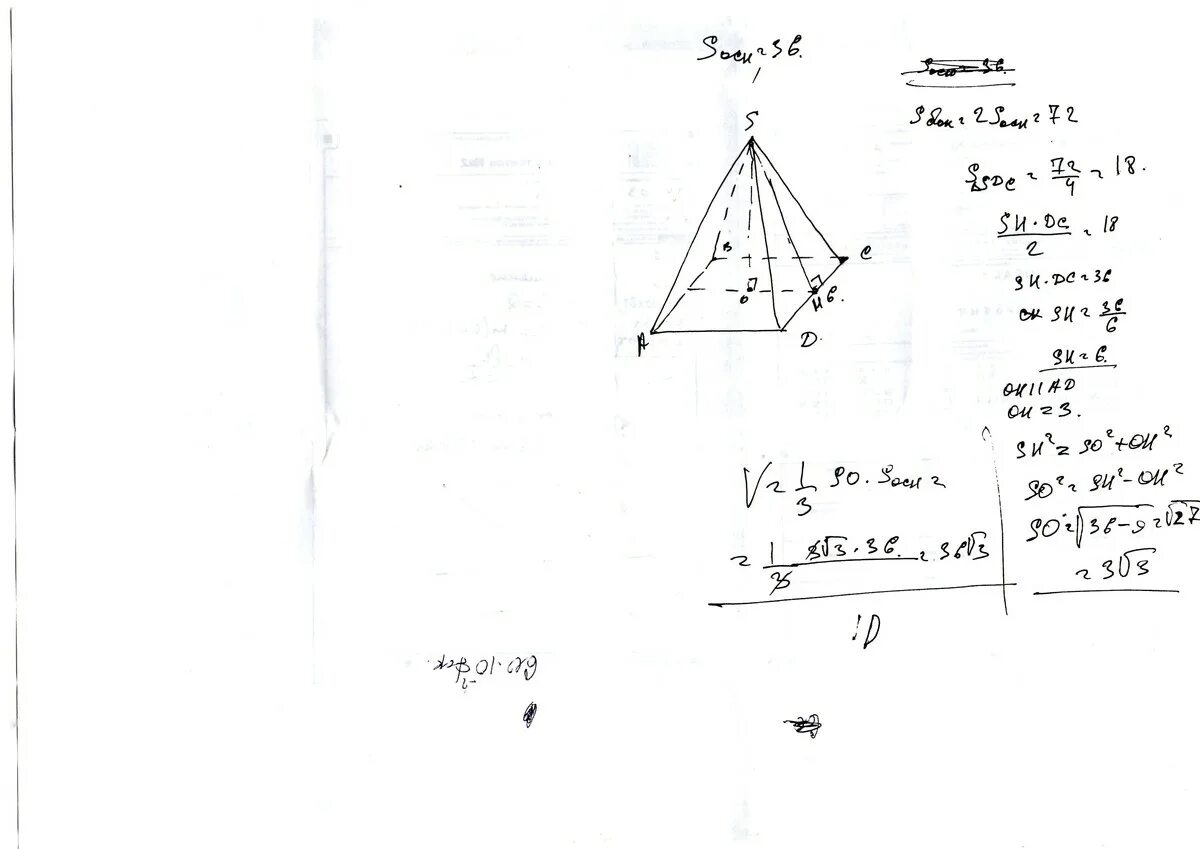 Sосн = 36.
Sосн = 36.
Sбок = 2Sосн = 72
S
B
C
O
H
6.
A
D.
S△SDC = 72/4 = 18.
SH·DC/2 = 18
SH·DC = 36
SH = 36/6
SH = 6.
OH || AD
OH = 3.
SH² = SO² + OH²
SO² = SH² - OH²
SO = √36-9 = √27
= 3√3
V = 1/3 SO · Sосн =
= 1/3 3√3 · 36. = 36√3